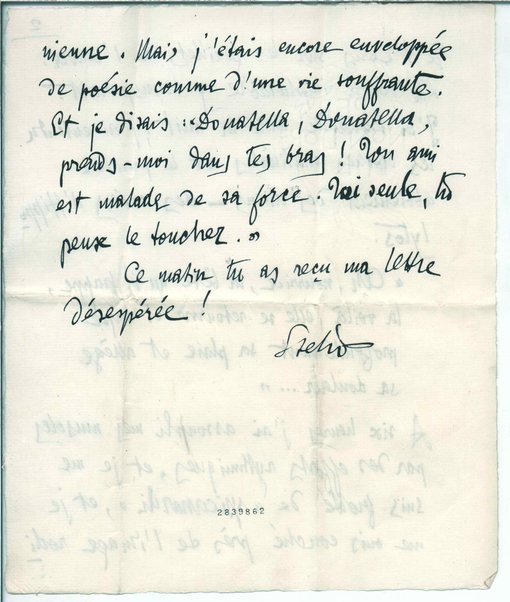 nienne. Mais j'étais encore enveloppée
de poésie comme d'une vie souffrante.
Et je disais : "Donatella, Donatella,
prends-moi dans tes bras ! Ton ami
est malade de sa force. Toi seule, tu
peux le toucher."
Ce matin tu as reçu ma lettre
désespérée !
Stelio
2839862